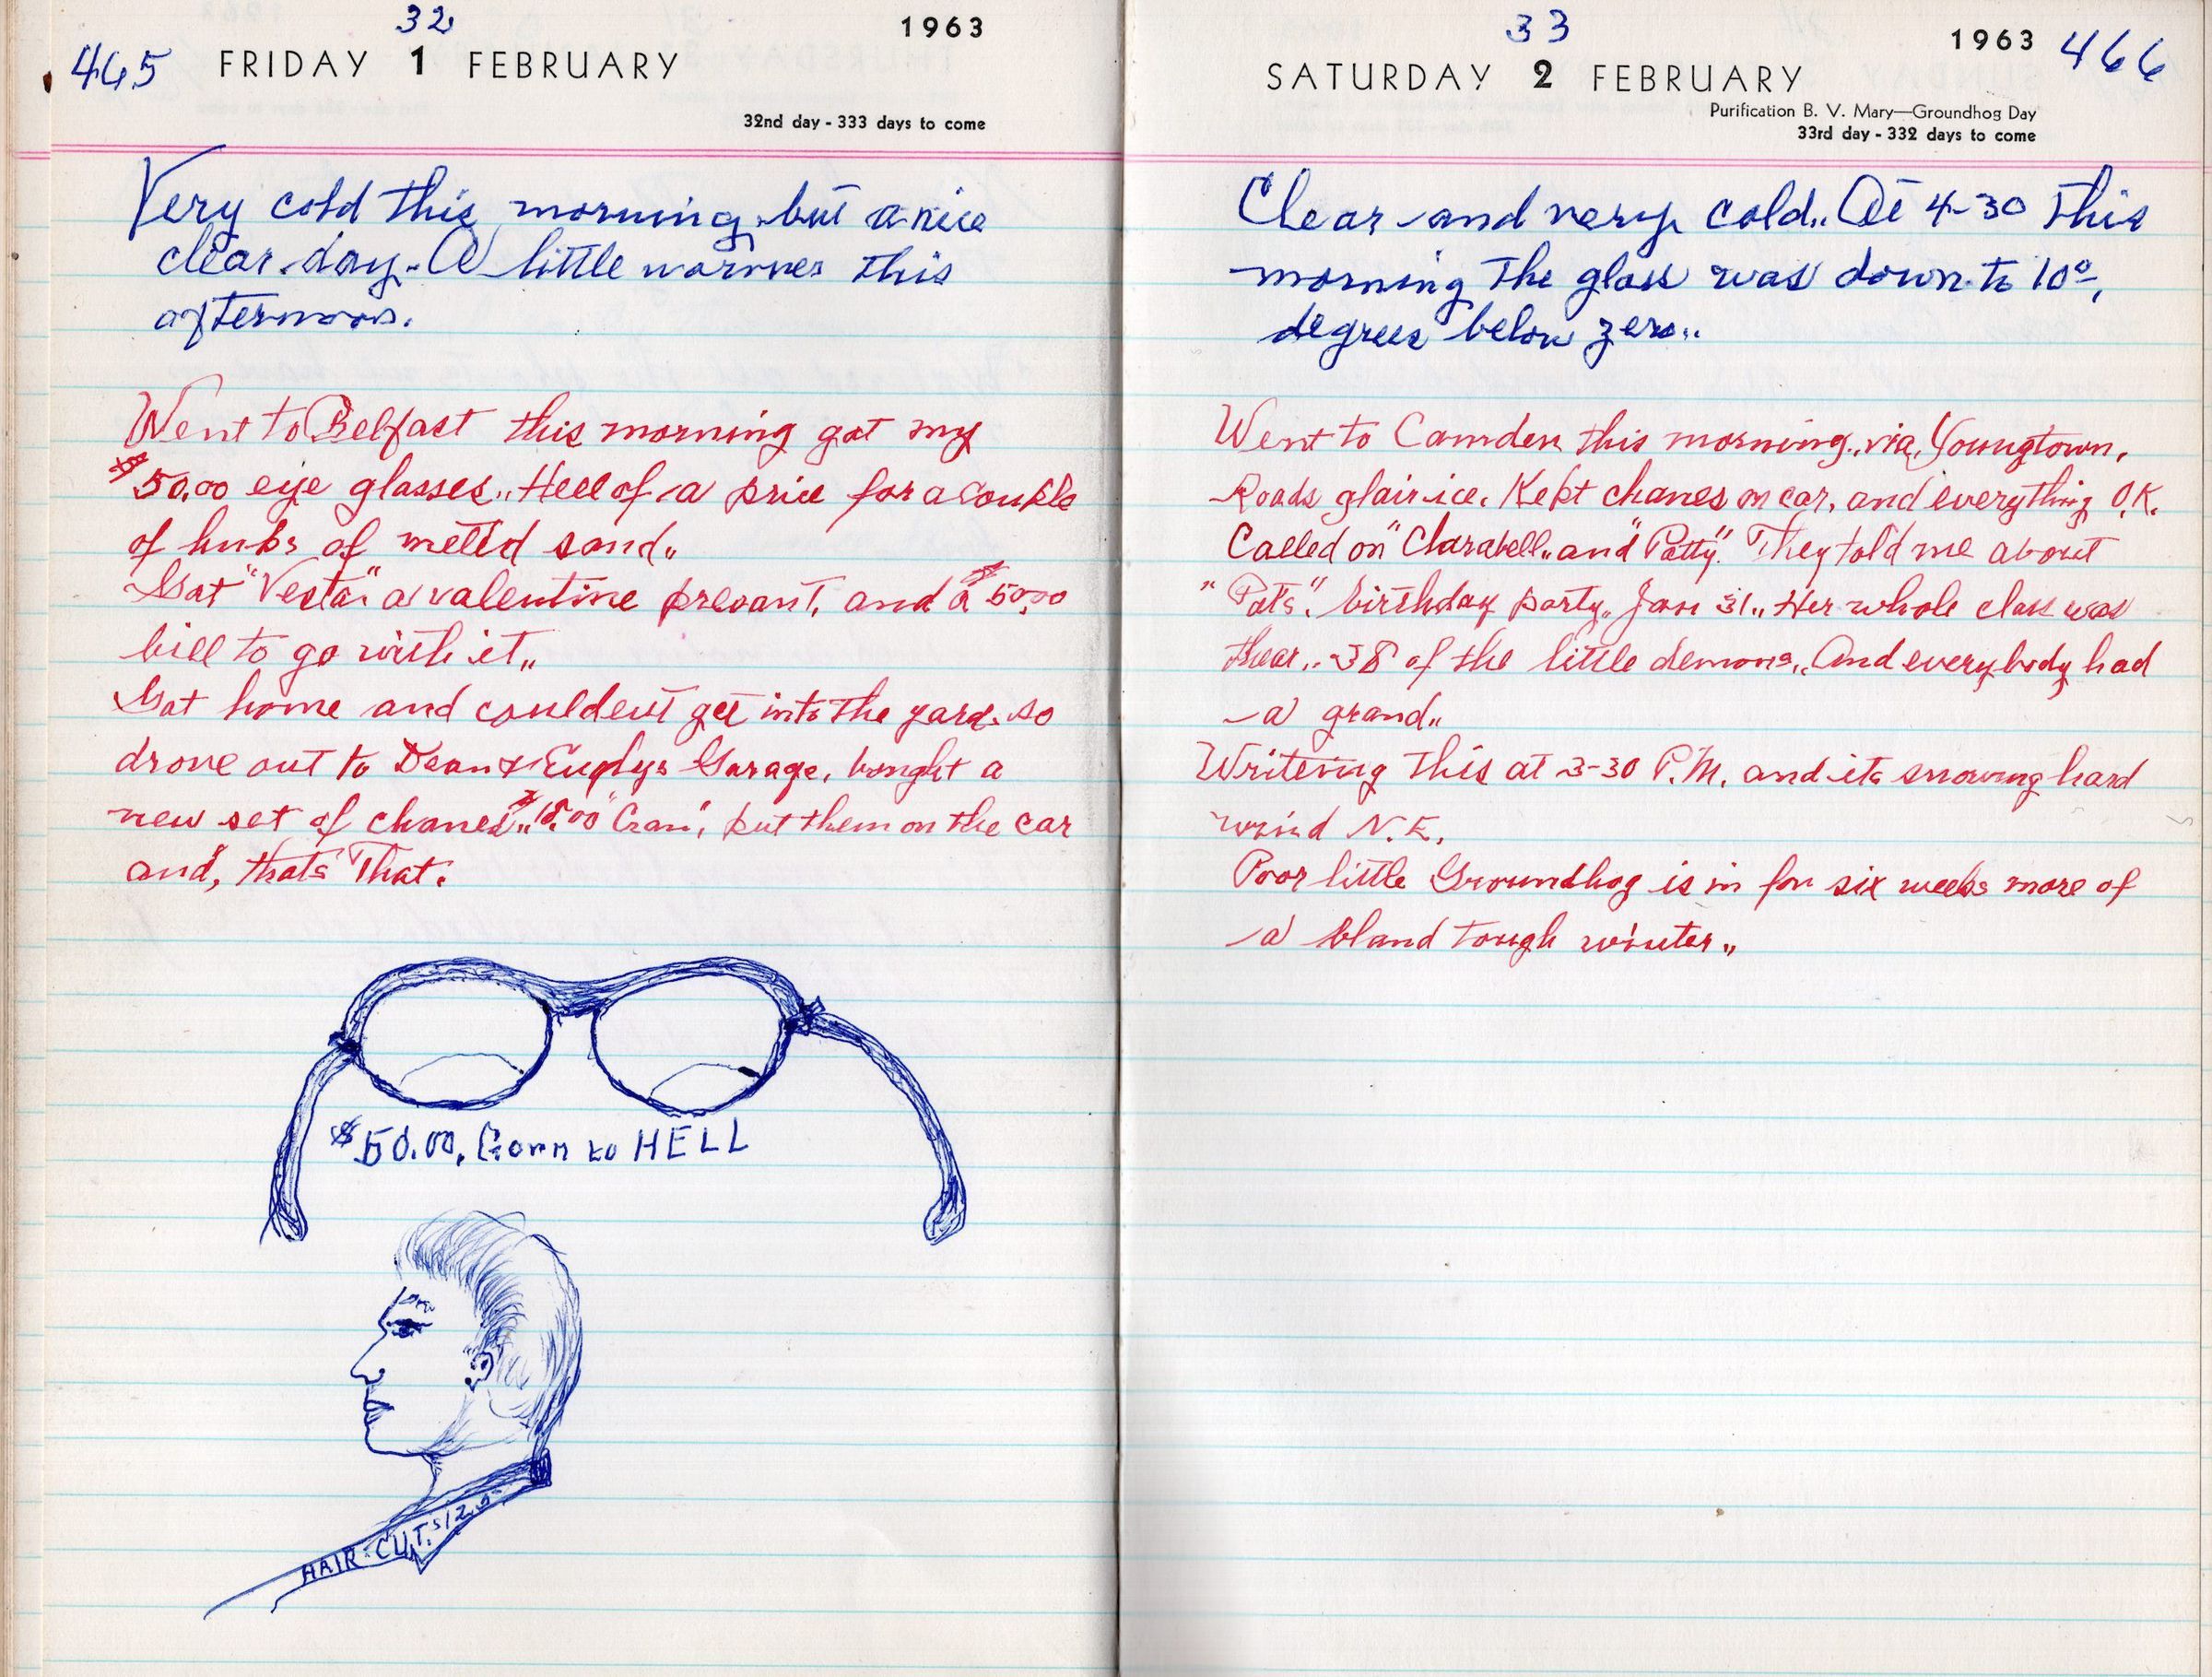 32
1963
465 FRIDAY 1 FEBRUARY
32nd day - 333 days to come
Very cold this morning but a nice
clear day. A little warmer this
afternoon.
Went to Belfast this morning got my
$50.00 eye glasses,, Hell of a price for a couple
of hunks of melted sand,,
Got "Vesta" a valentine presant, and a $50.00
bill to go with it,,
Got home and couldent get into the yard. so
drove out to Dean & Euglys Garage, bought a
new set of chanes,, $18.00 put them on the car
and, thats That.
$50.00, Gorn to HELL
HAIR-CUT. $12.5
33
1963 466
SATURDAY 2 FEBRUARY
Purification B. V. Mary—Groundhog Day
33rd day - 332 days to come
Clear and very cold,. At 4-30 This
morning The glass was down to 10°,
degrees below zero,.
Went to Camden this morning, via, Youngtown.
Roads glair ice. Kept chanes on car, and everything O.K.
Called on "Clarabell,, and "Patty". They told me about
"Pats". birthday party,, Jan 31,, Her whole class was
thear,. 38 of the little demons,. And everybody had
a grand,,
Writeing This at 3-30 P.M. and its snowing hard
wind N.E.
Poor little Groundhog is in for six weeks more of
a bland tough winter,,